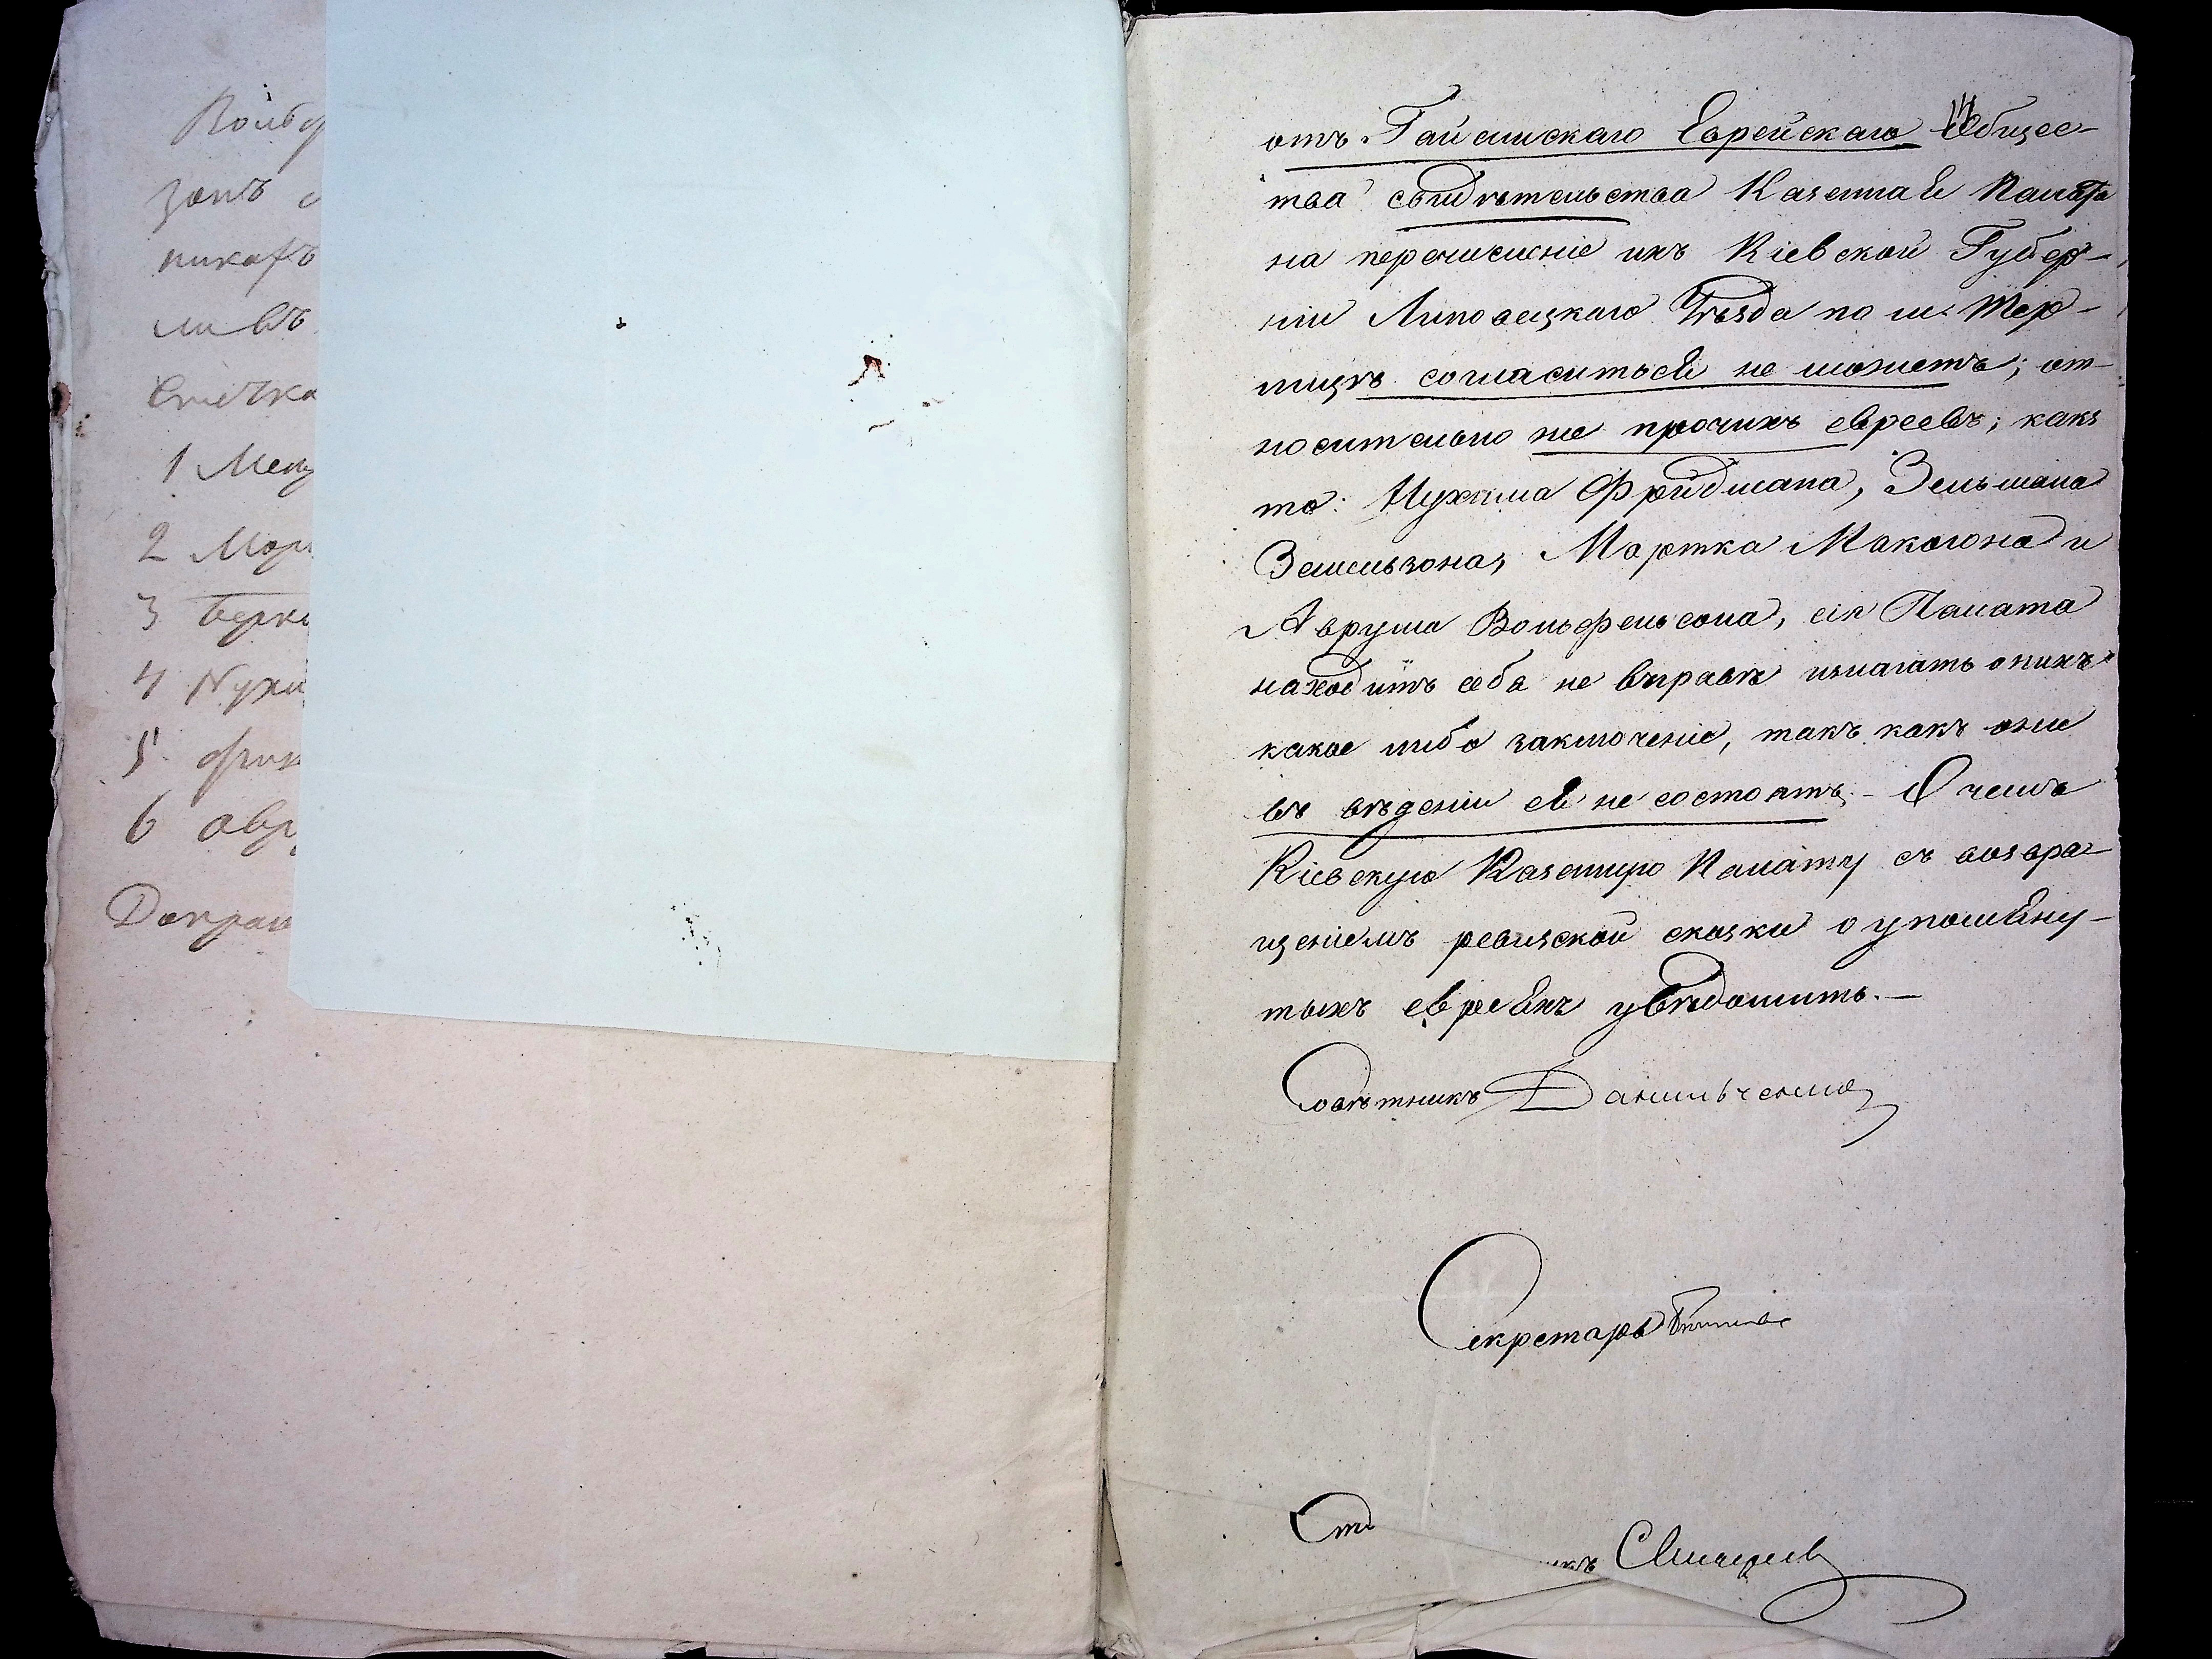 зонъ
никахъ
ливъ
1
2
3 Берк
4 Нухи
5
6 Авр
отъ Гайсинскаго Еврейскаго Общес-
тва свидѣтельства Казенная Палата
на перечисленіе ихъ Кіевской Губер-
ніи Липовецкаго Уѣзда по м. Тер-
лицѣ согласиться не можетъ; от-
носительно же прочихъ евреевъ; какъ
то: Нухима Фридмана, Зельмана
Земельзона, Мортка Макагона и
Аврума Вольфельсона, сія Палата
находитъ себя не вправѣ излагать о нихъ
какое либо заключеніе, такъ какъ они
въ вѣденіи ея не состоятъ. - О чемъ
Кіевскую Казенную Палату съ возвра-
щеніемъ ревизской сказки о упомяну-
тыхъ евреяхъ увѣдомить. —
Совѣтникъ Данильченко
Секретарь
Сто
икъ